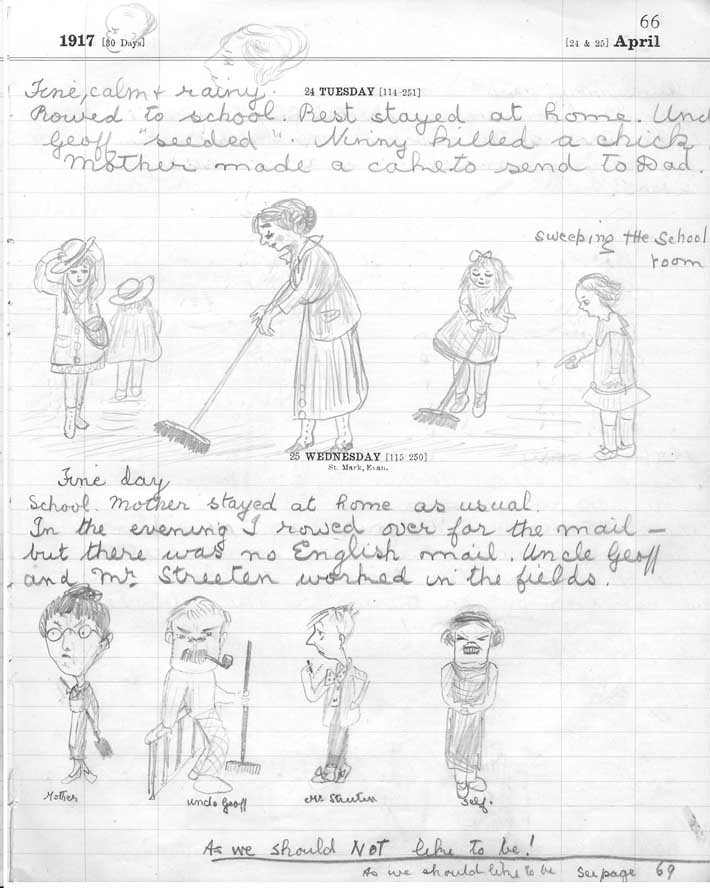 66
1917 [30 Days]
[24 & 25] April
24 TUESDAY [114-251]
Fine, calm & rainy.
Rowed to school. Rest stayed at home. Unc
Geoff "seeded". Ninny killed a chick
Mother made a cake to send to Dad.
Sweeping the School
room
25 WEDNESDAY [115-250]
St. Mark, Evan.
Fine day
School. Mother stayed at home as usual.
In the evening I rowed over for the mail –
but there was no English mail. Uncle Geoff
and Mr. Streeten worked in the fields.
Mother
Uncle Geoff
Mr Streeten
Self.
As we should NOT like to be!
As we should like to be See page 69